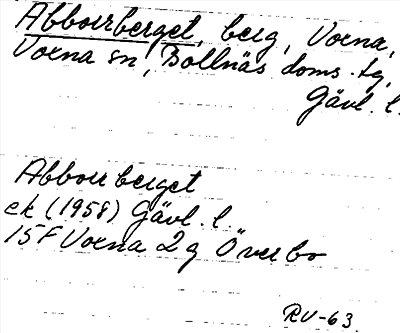 Abborrberget, berg, Voxna,
Voxna sn, Bollnäs doms. tg,
Gävl. l.
Abborrberget
ek (1958) Gävl. l.
15F Voxna 2g Överbo
RV-63.